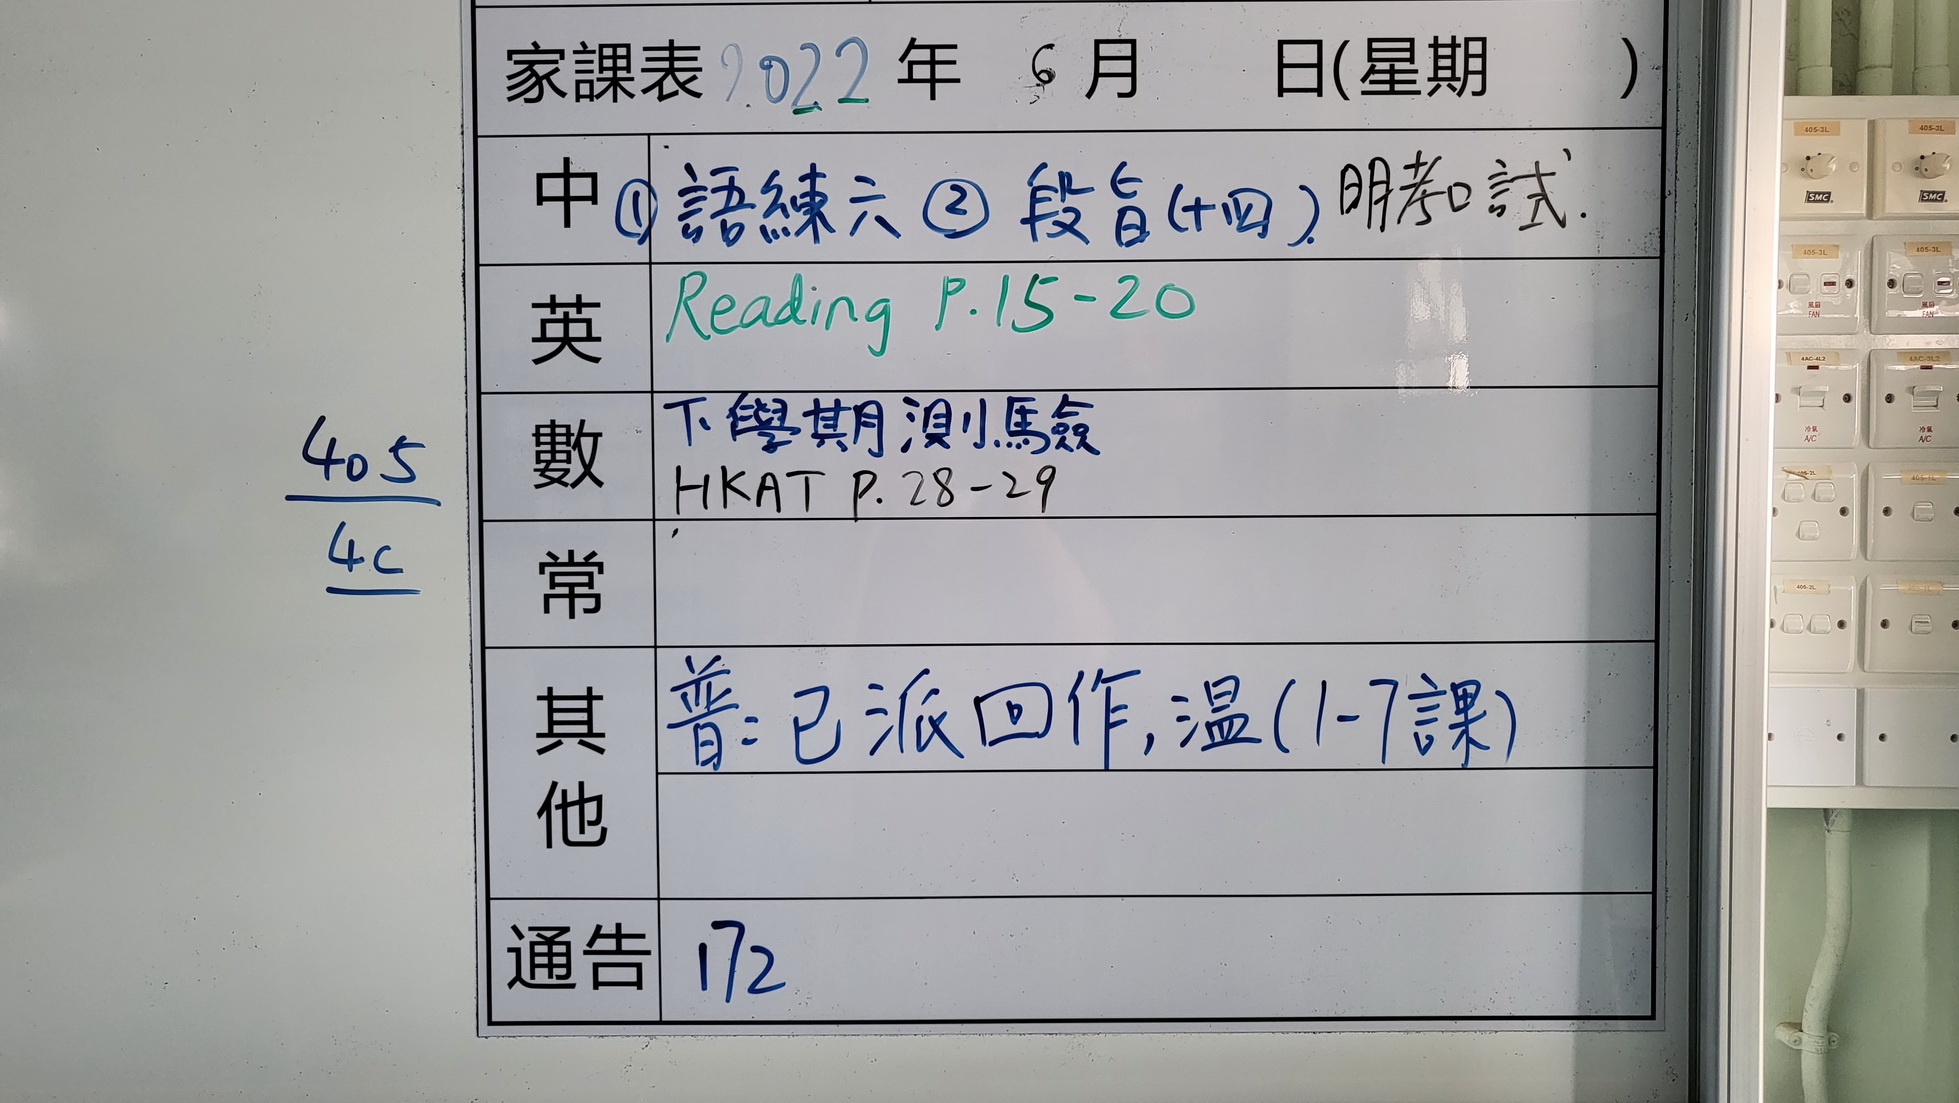 家課表 2022 年 6 月 日(星期 )
中 ① 語練六 ② 段旨(十四). 明考口試.
英 Reading P.15-20
數 下學期測驗
HKAT P. 28-29
常
其他 普: 已派回作, 温(1-7課)
通告 172
405
4C
405-3L 405-3L
SMC SMC
405-3L 405-3L
風扇 FAN 風扇 FAN
4AC-4L2 4AC-3L2
冷氣 A/C 冷氣 A/C